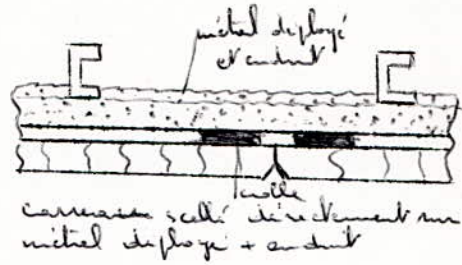 métal déployé
et enduit
colle
carreaux scellé directement sur
métal déployé + enduit